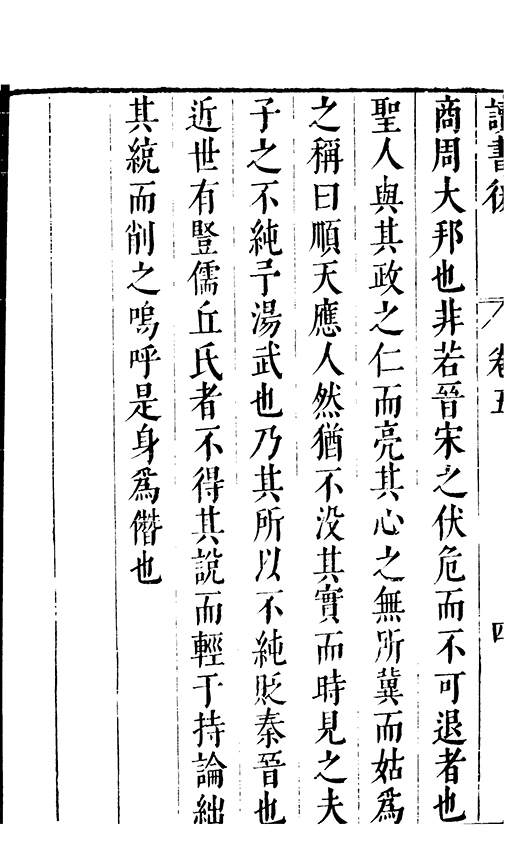 讀書後 卷五 四
商周大邦也非若晉宋之伏危而不可退者也
聖人與其政之仁而亮其心之無所冀而姑爲
之稱曰順天應人然猶不没其實而時見之夫
子之不純予湯武也乃其所以不純貶秦晉也
近世有豎儒丘氏者不得其說而輕于持論絀
其統而削之嗚呼是身爲僭也